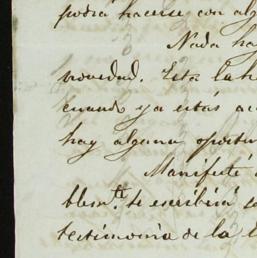 podia hacerse con al
Nada ha
novedad. Esta la h
cuando ya estás ac
hay alguna oportu
Manifesté
blemte. te escribirá
testimonia de la